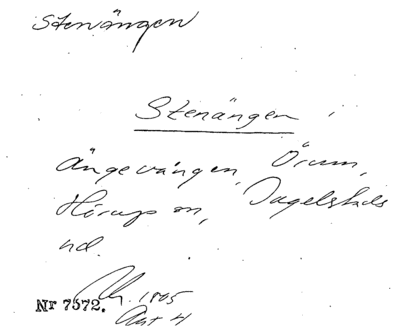 Stenängen
Stenängen
Ängevången, Örum,
Hörups sn, Ingelstads
hd.
Lh. 1805
Akt 4
Nr 7572.